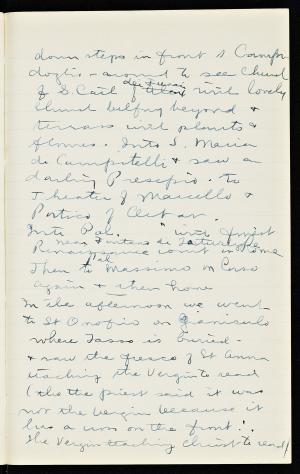 down steps in front of Campi
doglio - around to see Church
of S. Cat. dei Funari with lovely
Church belfry beyond &
terrace with plants &
flowers. Into S. Maria
do Campitelli & saw a
darling Presepio. to
Theater of Marcello &
Portico of Octav.
Into Pal. " with finest
near Fontana di Tartarughe
Renaissance court in Rome
Then to Pal Massimo on Corso
again & then home
In the afternoon we went
to St Onofrio on Gianiculo
where Tasso is buried -
& saw the fresco of St Anna
teaching the Virgin to read
(tho the priest said it was
not the Virgin because it
has a cross on the front!.
the Virgin teaching Christ to read)